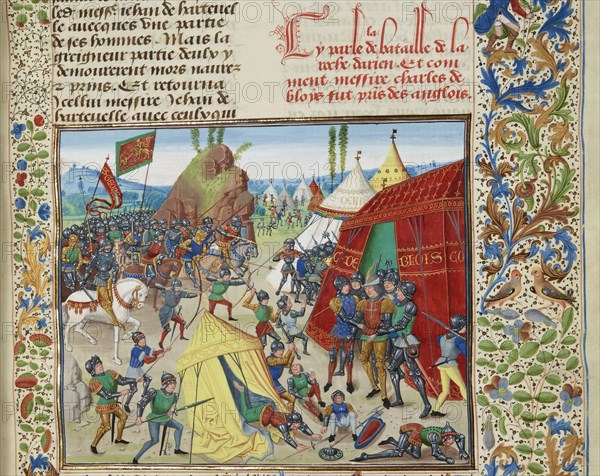 led. mess. iehan de harteuel
le auecques vne partie
de ses hommes. Mais la
greigneur partie deulx y
demourerent mors naurez
z prins. Et retourna
icellui messire Iehan de
harteuelle avec ceulx qui
la
Cy parle de bataille de la
roche darien. Et com
ment messire charles de
bloys fut prins des anglois.
DE BLOIS CO